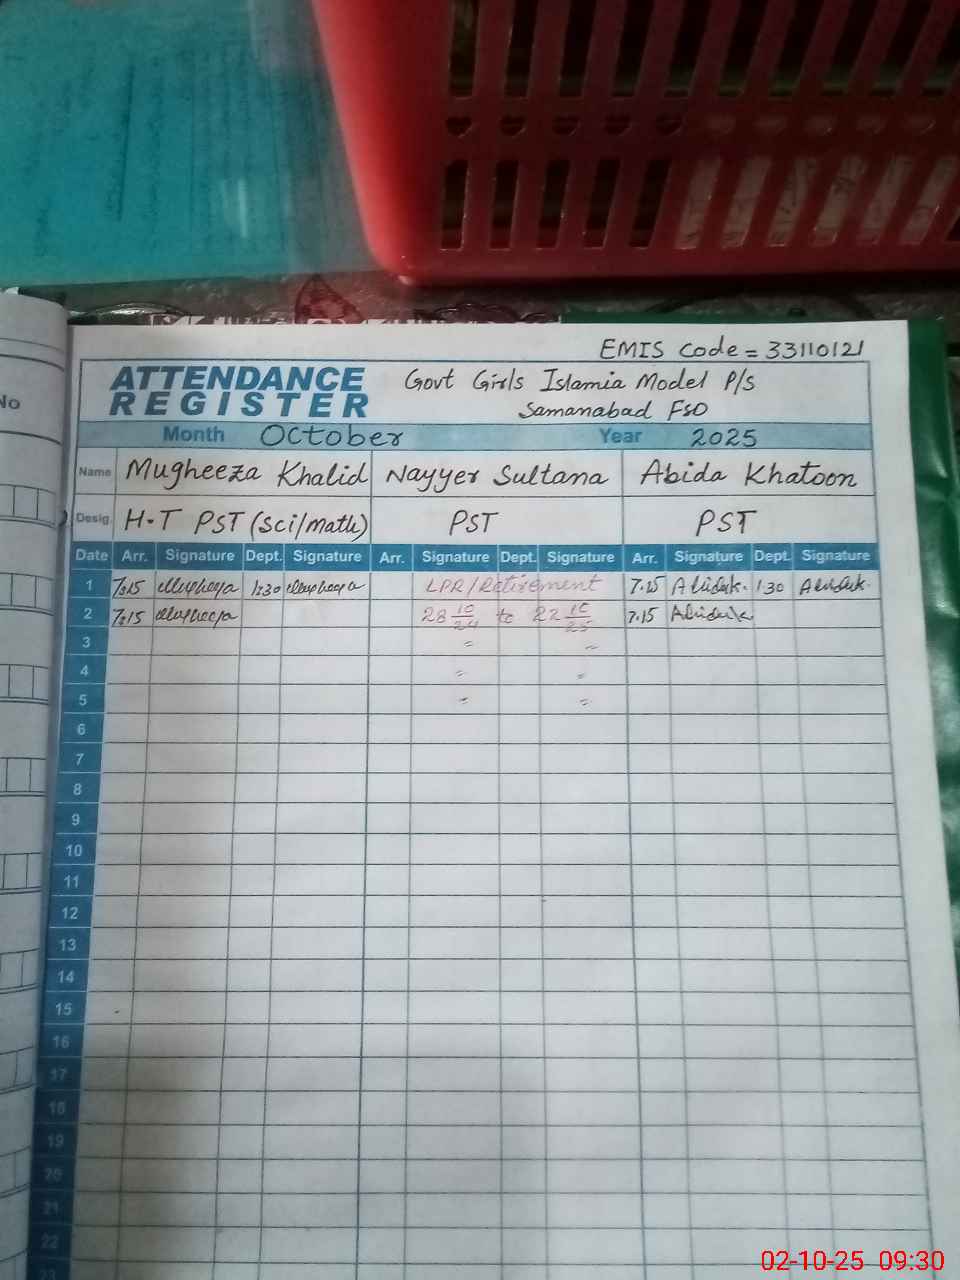 EMIS Code = 33110121
ATTENDANCE REGISTER
Govt Girls Islamia Model P/S
Samanabad FSD
No
Month October Year 2025
Name Mugheeza Khalid Nayyer Sultana Abida Khatoon
Desig. H.T PST (Sci/math) PST PST
Date Arr. Signature Dept. Signature Arr. Signature Dept. Signature Arr. Signature Dept. Signature
1 7:15 Mugheeza 1:30 Mugheeza LPR/Retirement 7.15 Abidak. 1:30 Abidak.
2 7:15 Mugheeza 28 10/24 to 22 10/25 7.15 Abidak
3 = =
4 = =
5 = =
6
7
8
9
10
11
12
13
14
15
16
17
18
19
20
21
22
23
02-10-25 09:30